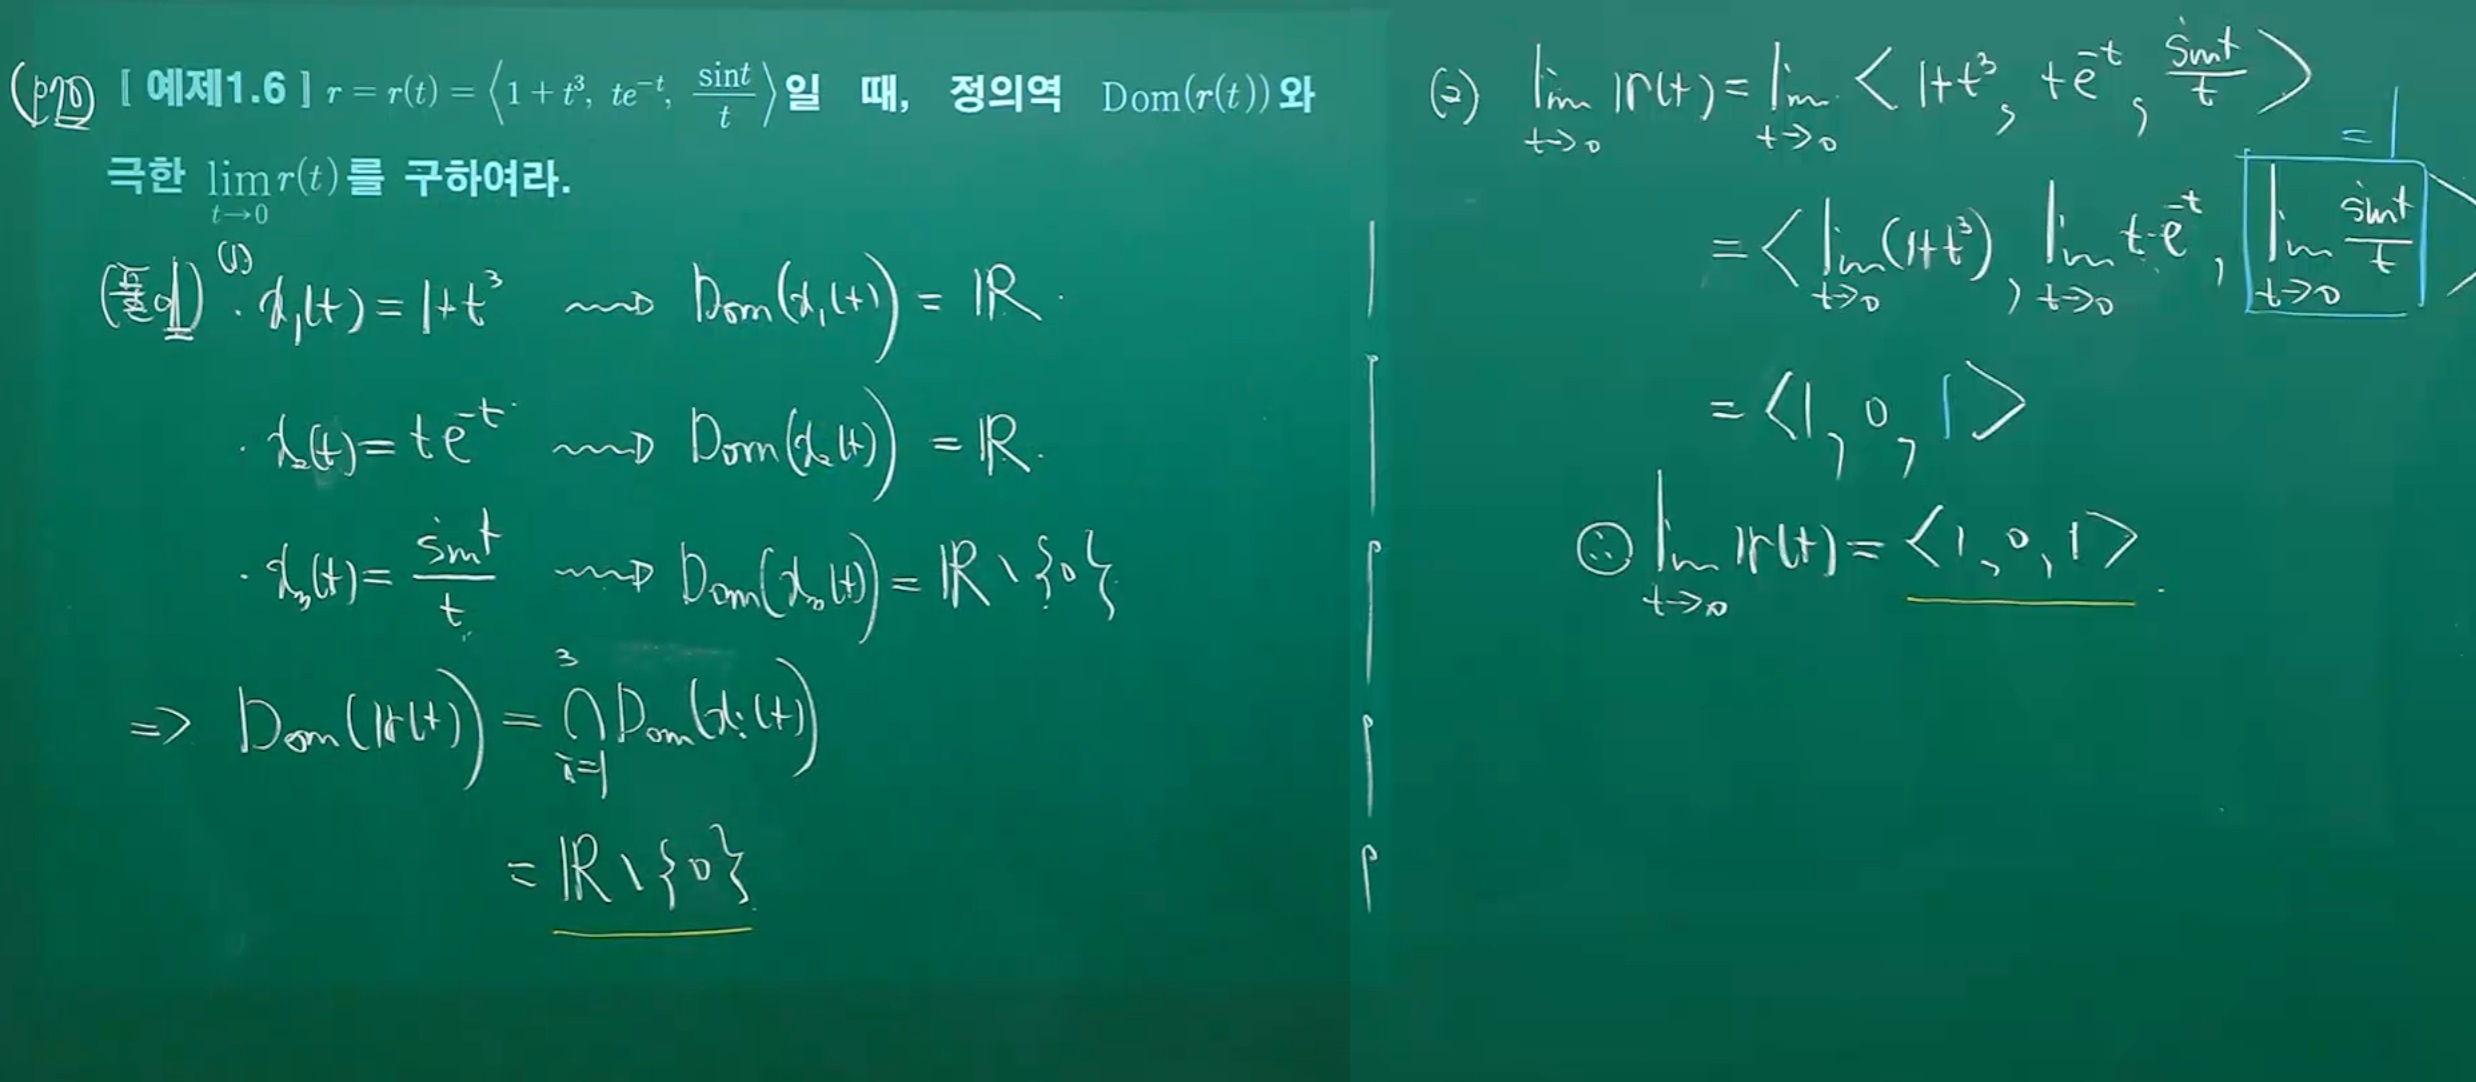 (p20) [ 예제1.6 ] r = r(t) = ⟨1 + t³, te⁻ᵗ, sint/t⟩일 때, 정의역 Dom(r(t))와
극한 lim_{t→0} r(t)를 구하여라.
(풀이) (1) · x₁(t) = 1+t³ ⟿ Dom(x₁(t)) = ℝ.
· x₂(t) = te⁻ᵗ ⟿ Dom(x₂(t)) = ℝ.
· x₃(t) = sint/t ⟿ Dom(x₃(t)) = ℝ \ {0}
⇒ Dom(r(t)) = ⋂_{i=1}^{3} Dom(xᵢ(t))
= ℝ \ {0}
(2) lim_{t→0} r(t) = lim_{t→0} < 1+t³, te⁻ᵗ, sint/t >
= 1
= < lim_{t→0} (1+t³), lim_{t→0} t·e⁻ᵗ, lim_{t→0} sint/t >
= <1, 0, 1>
∴ lim_{t→0} r(t) = <1, 0, 1>.